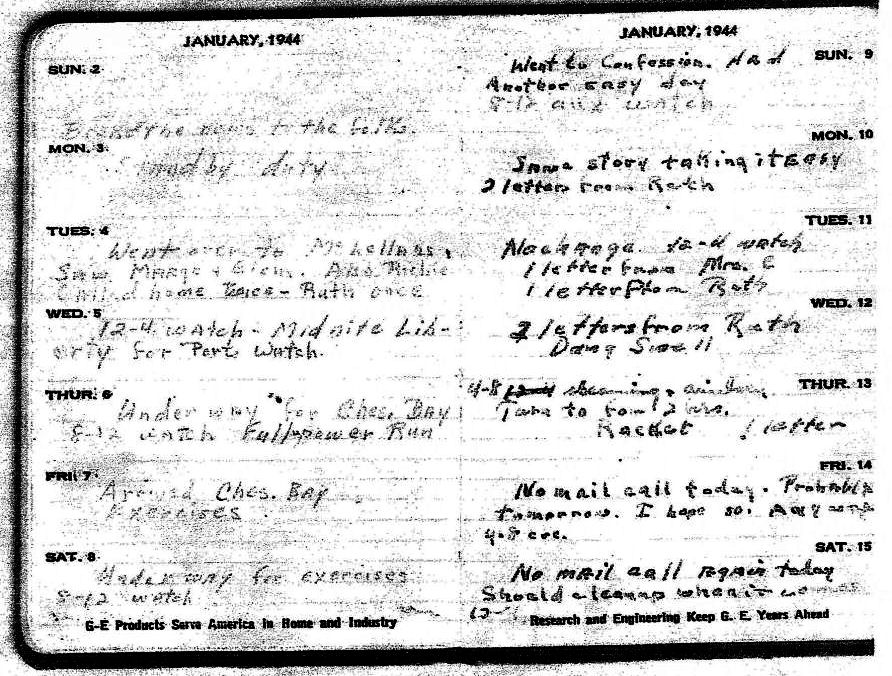 JANUARY, 1944
SUN. 2
the news to the folks.
MON. 3
Stand by duty
TUES. 4
Went over to
Saw Marge + Also Richie
Called home twice - Ruth once
WED. 5
12-4 watch - Midnite Lib-
erty for Port Watch.
THUR. 6
Under way for Ches. Bay
8-12 watch Full power Run
FRI. 7
Around Ches. Bay
Exercises
SAT. 8
Under way for exercises
8-12 watch
G-E Products Serve America in Home and Industry
JANUARY, 1944
SUN. 9
Went to Confession. Had
Another easy day
8-12 watch
MON. 10
Same story taking it EASY
2 letters from Ruth
TUES. 11
12-4 watch
1 letter from Mrs. C
1 letter from Ruth
WED. 12
2 letters from Ruth
Dang Swell
THUR. 13
4-8 12-4
to 12 hrs.
Racket 1 letter
FRI. 14
No mail call today. Probably
tomorrow. I hope so. Any way
4-8 eve.
SAT. 15
No mail call again today
Should cleanup when it comes
12-
Research and Engineering Keep G. E. Years Ahead